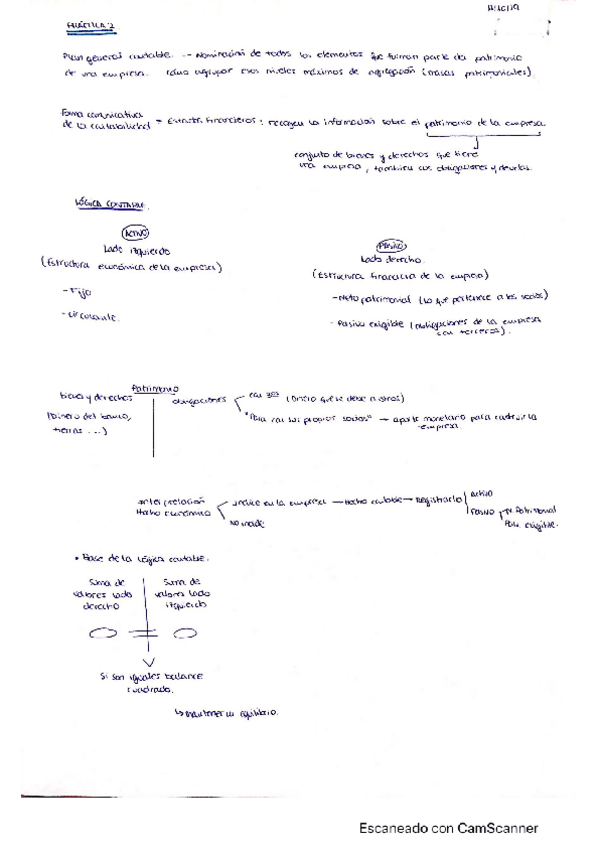 PRÁCTICA 2
Plan general contable. -- Nominación de todos los elementos que forman parte del patrimonio
de una empresa. Cómo agrupar esos niveles máximos de agregación (masas patrimoniales).
Forma comunicativa
de la contabilidad = Estados Financieros: recogen la información sobre el patrimonio de la empresa.
conjunto de bienes y derechos que tiene
una empresa, también sus obligaciones y deudas.
LÓGICA CONTABLE.
ACTIVO
Lado izquierdo
(Estructura económica de la empresa)
- Fijo
- Circulante.
PASIVO
Lado derecho.
(Estructura financiera de la empresa)
- Neto patrimonial (lo que pertenece a los socios)
- Pasivo exigible (obligaciones de la empresa
con terceros).
Patrimonio
bienes y derechos
(Dinero del banco,
tierras ...)
obligaciones
con 3os (Dinero que se debe a otros)
"Para con sus propios socios" → aporte monetario para construir la
empresa
Interpretación
Hecho económico
incide en la empresa — Hecho contable → Registrarlo
Activo
Pasivo
N. Patrimonial
Pas. exigible.
No incide
• Base de la lógica contable.
Suma de
valores lado
derecho
Suma de
valores lado
izquierdo
=
Si son iguales balance
cuadrado.
↳ mantener un equilibrio.
Escaneado con CamScanner